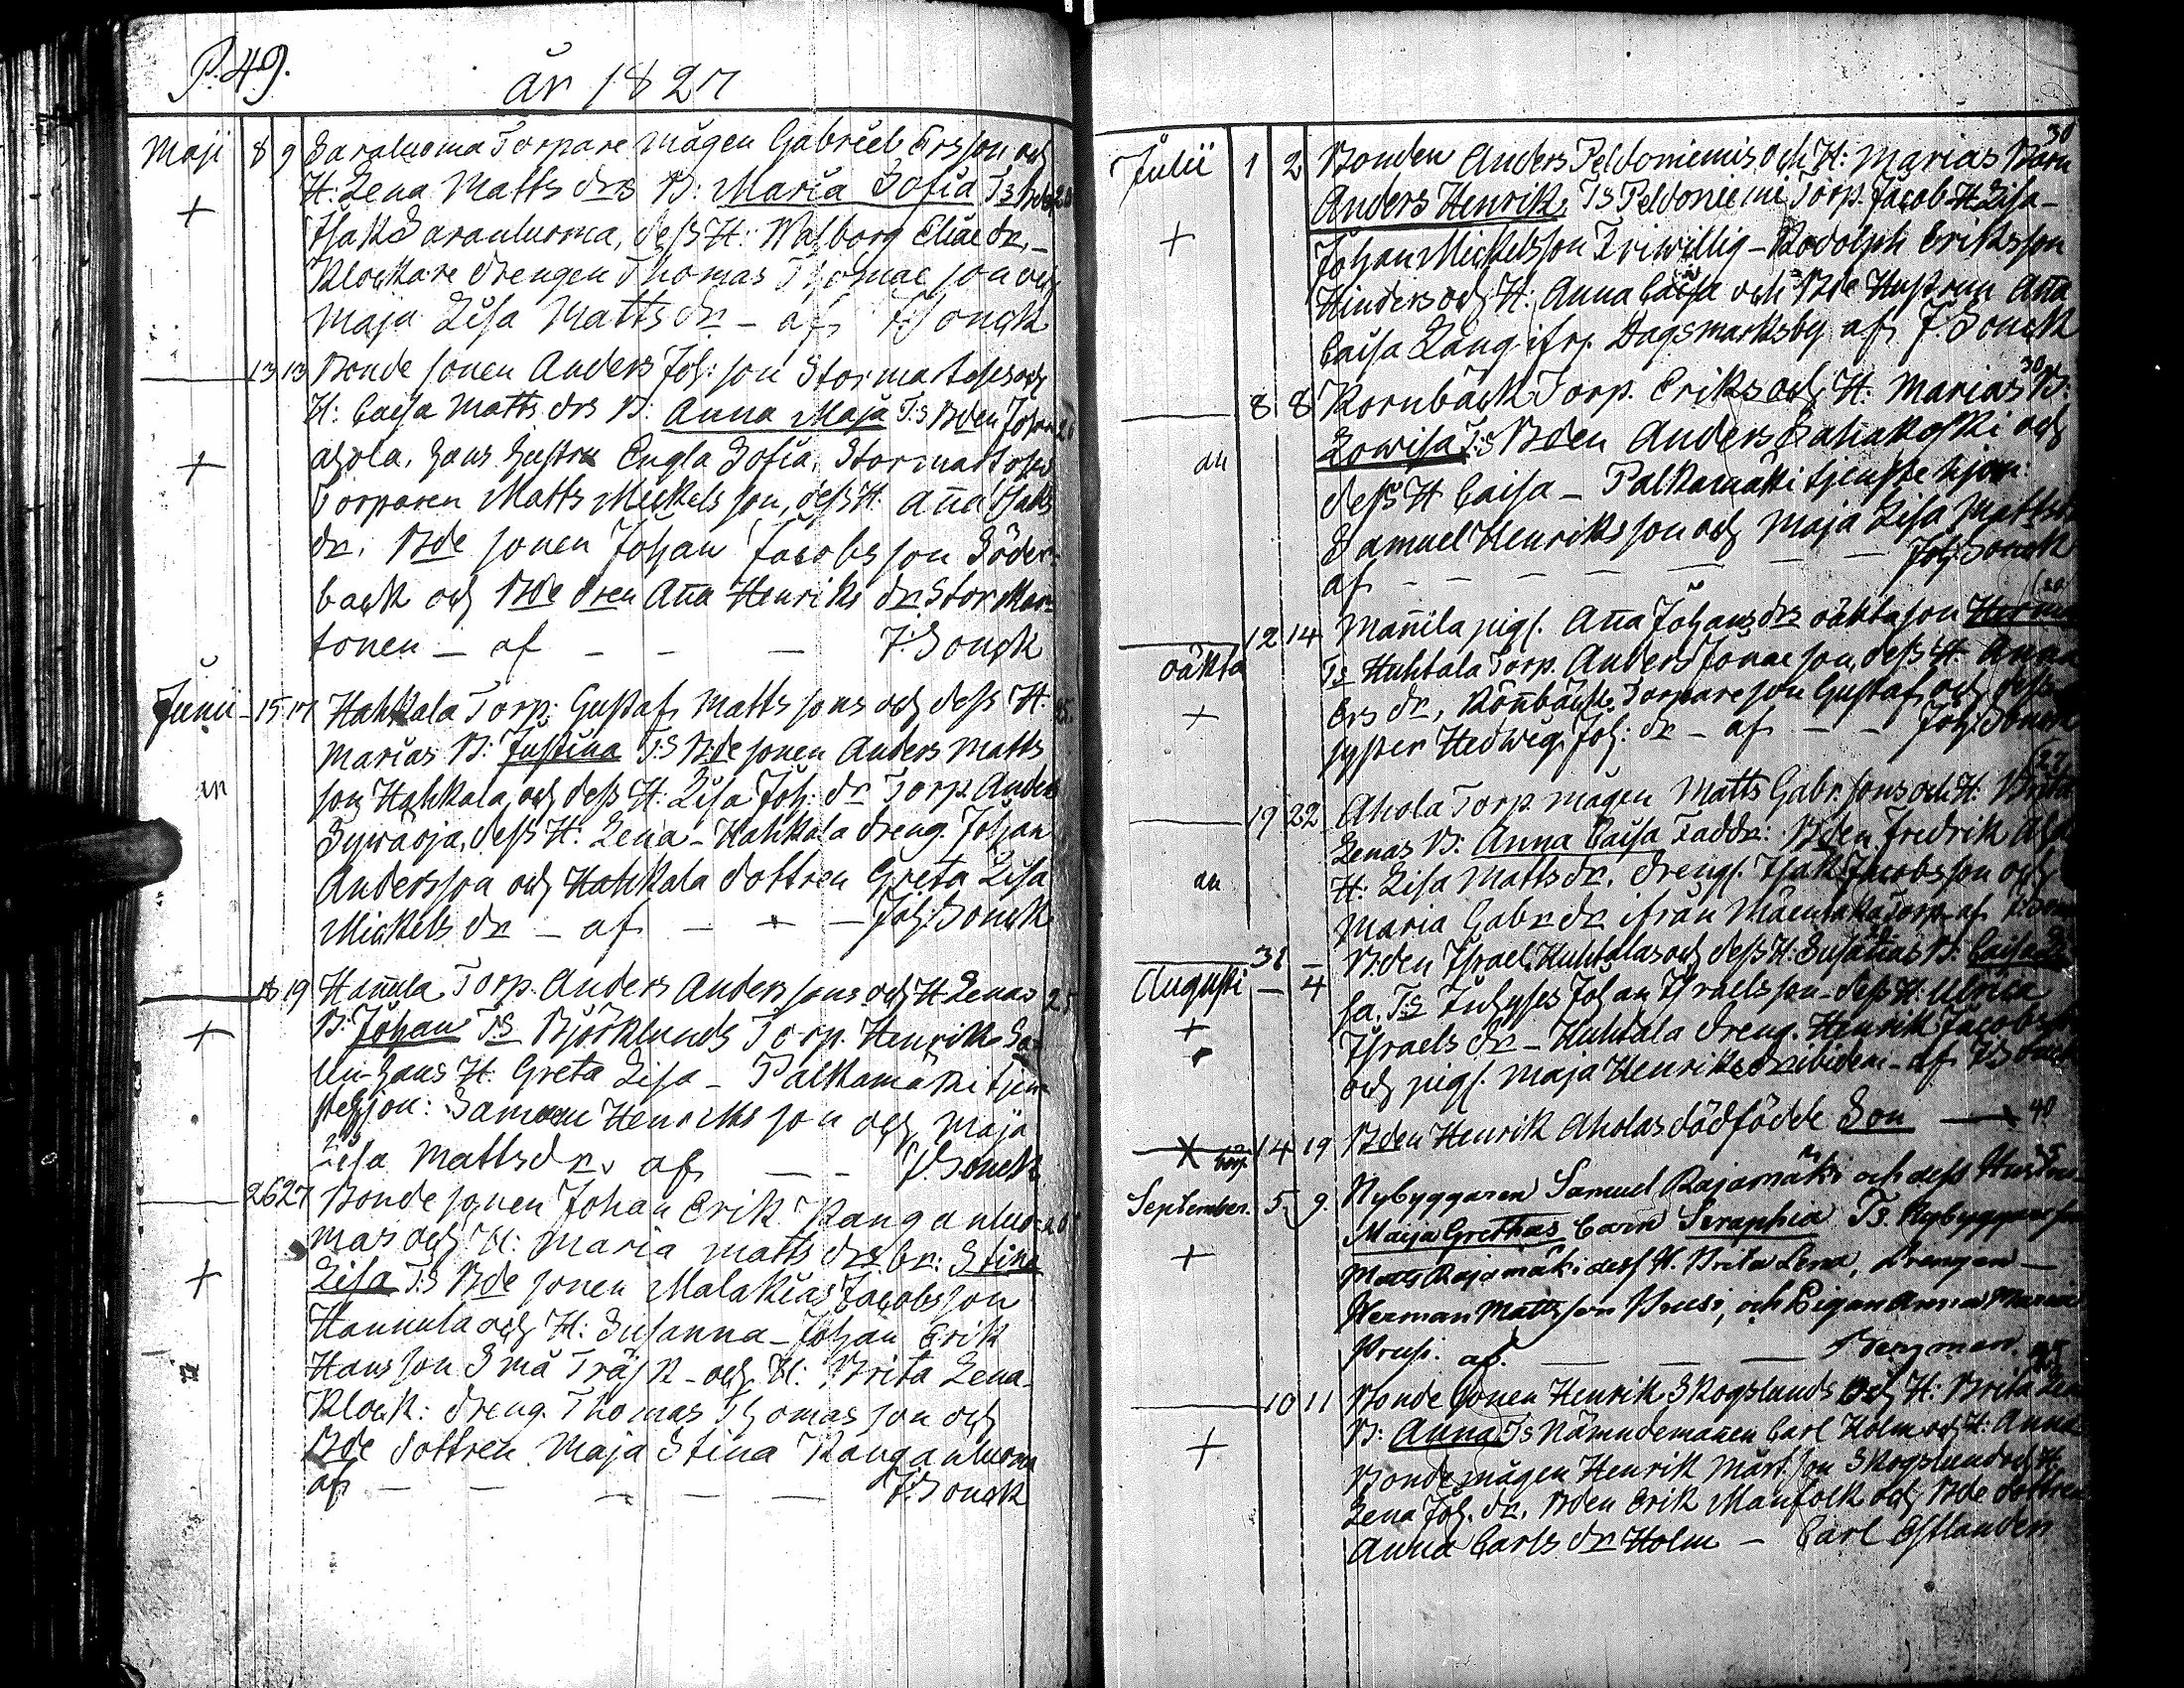 P. 49.
år 1827
Maji 8 9 Saraluoma Torpare mågen Gabriel Ersson och
H: Lena Matts drs B: Maria Sofia Ts Bden 28
+ Isak Saranluoma, dess H: Walborg Eliae dr, –
Klockare drengen Thomas Thomae son och
Maja Lisa Matts dr – af J: Sonck
13 13 Bonde sonen Anders Joh: son Stormartens och
H: Caisa Matts drs B: Anna Maja T:s Bden Johan
+ Ahola, hans hustru Engla Sofia, Stormartens
Torparen Matts Mickels son, dess H: Aña Isaks
dr, Bde sonen Johan Jacobs son Söder-
back och Bde dren Aña Henriks dr Stormar-
tonen – af – – – J: Sonck
Junii 15 17 Hahkala Torp: Gustaf Matts sons och dess H:
Marias B: Justina T:s Bde sonen Anders Matts
son Hahkala och dess H: Lisa Joh: dr Torp. Anders
Sywäoja, dess H: Lena – Hahkala dreng. Johan
Andersson och Hahkala dottren Greta Lisa
Mickels dr – af – – – Joh: Sonck
18 19 Hañula Torp. Anders Anders sons och H: Lenas 25
+ B: Johan Ts Björklunds Torp. Henrik
hans H: Greta Lisa – Palkamäki tjen-
stehjon: Samuel Henriks son och Maja
Lisa Matts dr, af – – J: Sonck
26 27 Bonde sonen Johan Erik Kanganluo-
mas och H: Maria Matts drs br: Stina
+ Lisa T:s Bde sonen Malakias Jacobs son
Hannula och H: Susanna – Johan Erik
Hans son Små Träsk – och H: Brita Lena
Klock: dreng. Thomas Thomas son och
Bde dottren Maja Stina Kanganluoma
af – – – – – J: Sonck
Julii 1 2 Bonden Anders Peldoniemis och H: Marias Barn 30
Anders Henrik, Ts Peldoniemi Torp. Jacob H: Lisa –
+ Johan Mickelsson Friwillig – Rodolph Eriksson
Hinders och H: Anna Caisa och Bde Hustrun Aña
Caisa Lång ifr. Dagsmarksby af J: Sonck
8 8 Kornbäck Torp. Eriks och H: Marias B: 30
Lowisa T:s Bden Anders Sahakoski och
dess H: Caisa – Palkamäki tjenste hjon:
Samuel Henriks son och Maja Lisa Matts
af – – – – – – Joh: Sonck
12 14 Mañila pig. Aña Johans drs oäkta son Herman
oäkta Ts Huhtala Torp. Anders Jonae son, dess H: Anna
+ Ers dr, Torpare son Gustaf och dess
syster Hedwig Joh: dr – af – – Joh: Sonck
19 22 Ahola Torp mågen Matts Gabr: sons och H: Brita 27
Lenas B: Anna Caisa Faddr: Bden Fredrik
H: Lisa Matts dr, dreng. Isak Jacobs son och
Maria Gabr dr ifrån Torp. af
31 – Bden Israel Huhtalas och dess H: Susañas B: Caisa Li-
Augusti – 4 sa. Ts Johan Israels son – dess H: Ulrica
+ Israels dr – Huhtala dreng. Henrik Jacobs
och pig. Maja Henriks dr ibidem – af J: Sonck
X 14 19 Bden Henrik Aholas dödfödde Son – 40
September. 5. 9. Nybyggaren Samuel Rajamäki och dess Hustru
Maija Grethas barn Seraphia Ts. Nybyggare
+ Matts Rajamäki dess H. Brita Lena, Drengen –
Herman Mattsson Prusi, och Pigan Anna Maria
Prusi. af. – – – Bergman
10 11 Bonde sonen Henrik Skogslunds och H: Brita
+ B: Anna Ts Nämndemanen Carl Holm och H: Anna
Bonde mågen Henrik Märt: son Skogslund och H:
Lena Joh. dr. Bden Erik Manfolk och Bde dottren
Anna Carls dr Holm – Carl Estlander